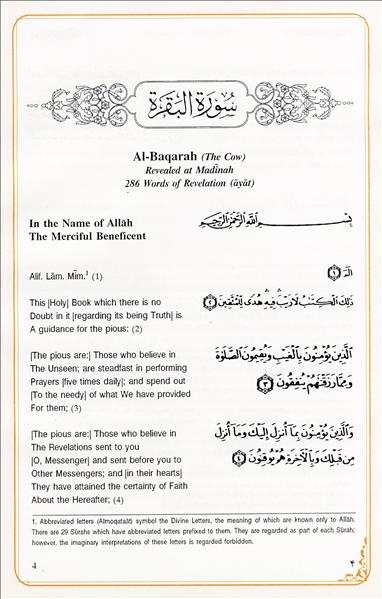 سُورَةُ الْبَقَرَةِ
Al-Baqarah (The Cow)
Revealed at Madīnah
286 Words of Revelation (āyāt)
In the Name of Allāh
The Merciful Beneficent
بِسْمِ اللَّهِ الرَّحْمَٰنِ الرَّحِيمِ
Alif. Lām. Mīm.¹ (1)
الٓمٓ ﴿١﴾
This |Holy| Book which there is no
Doubt in it |regarding its being Truth| is
A guidance for the pious: (2)
ذَٰلِكَ الْكِتَٰبُ لَا رَيْبَ ۛ فِيهِ ۛ هُدًى لِّلْمُتَّقِينَ ﴿٢﴾
|The pious are:| Those who believe in
The Unseen; are steadfast in performing
Prayers |five times daily|; and spend out
|To the needy| of what We have provided
For them; (3)
الَّذِينَ يُؤْمِنُونَ بِالْغَيْبِ وَيُقِيمُونَ الصَّلَوٰةَ
وَمِمَّا رَزَقْنَٰهُمْ يُنفِقُونَ ﴿٣﴾
|The pious are:| Those who believe in
The Revelations sent to you
|O, Messenger| and sent before you to
Other Messengers; and |in their hearts|
They have attained the certainty of Faith
About the Hereafter; (4)
وَالَّذِينَ يُؤْمِنُونَ بِمَا أُنزِلَ إِلَيْكَ وَمَا أُنزِلَ
مِن قَبْلِكَ وَبِالْأَخِرَةِ هُمْ يُوقِنُونَ ﴿٤﴾
1. Abbreviated letters (Almoqataāt) symbol the Divine Letters, the meaning of which are known only to Allāh.
There are 29 Sūrahs which have abbreviated letters prefixed to them. They are regarded as part of each Sūrah;
however, the imaginary interpretations of these letters is regarded forbidden.
4
۴